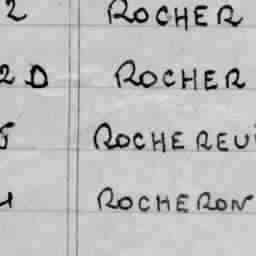 2 ROCHER
2 D ROCHER
ROCHEREU
ROCHERON